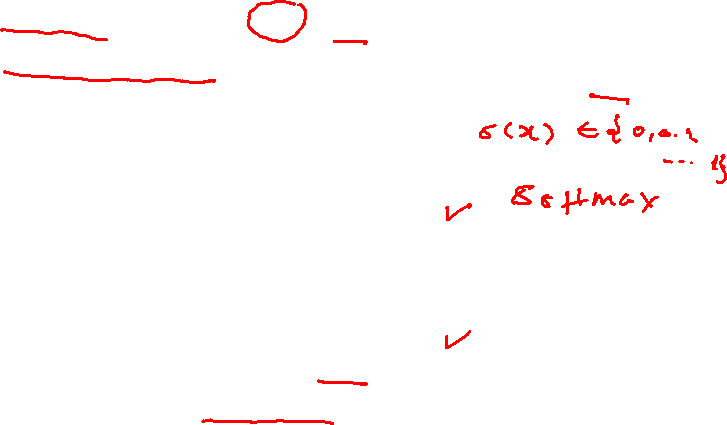 σ(x) ∈ { 0, 0.1
... 1}
Softmax